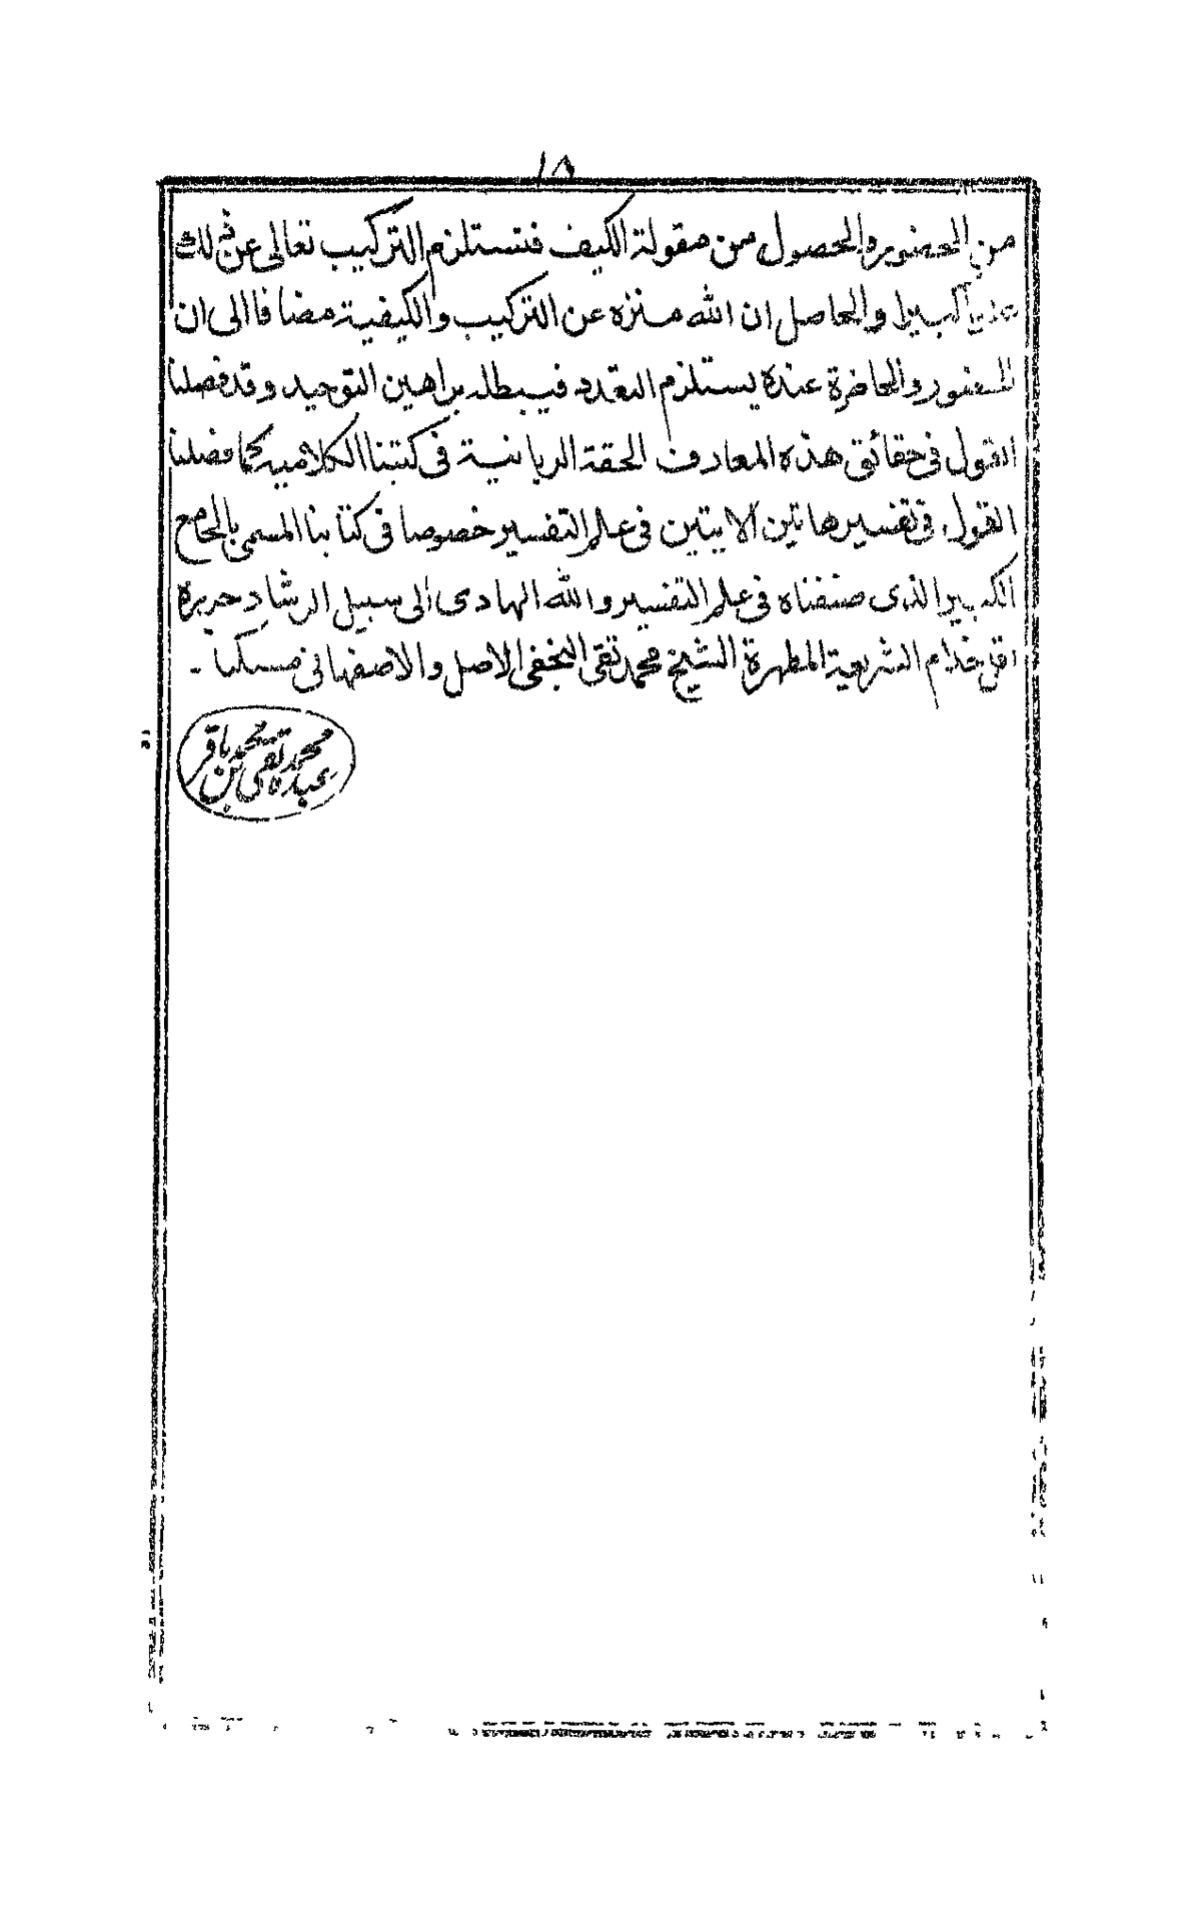 ١٨
من الحضور والحصول من مقولة الكيف فتستلزم التركيب تعالى عن ذلك
علوا كبيرا والحاصل ان الله منزه عن التركيب والكيفية مضافا الى ان
الحضور والحاضرة عنده يستلزم التعدد فيبطله براهين التوحيد وقد فصلنا
القول فى حقائق هذه المعارف الحقة الربانية فى كتبنا الكلامية كما فصلنا
القول فى تفسير هاتين الايتين فى علم التفسير خصوصا فى كتابنا المسمى بالجامع
الكبير الذى صنفناه فى علم التفسير والله الهادى الى سبيل الرشاد حرره
اقل خدام الشريعة المطهرة الشيخ محمد تقى النجفى الاصل والاصفهانى مسكنا -
عبده محمد تقى بن محمد باقر